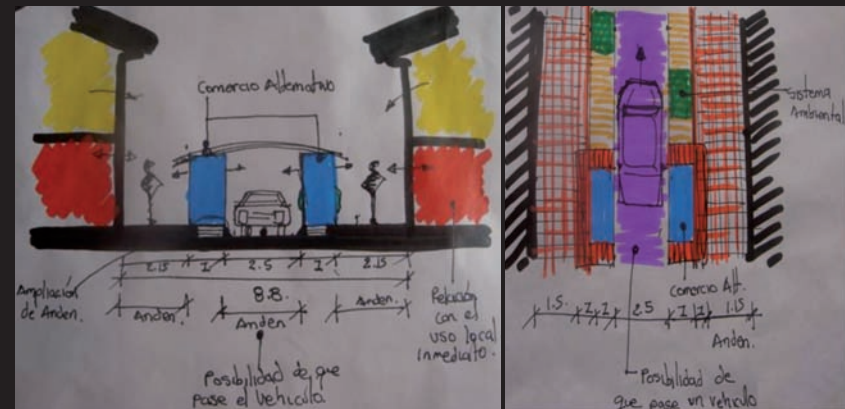 Comercio Alternativo
2.15 1 2.5 1 2.15
8.8.
Ampliación
de Anden.
Anden.
Anden.
Anden.
Relación
con el
uso local
inmediato.
Posibilidad de que
pase el vehículo.
Sistema
Ambiental
Comercio Alt.
1.5. 1 1 2.5 1 1 1.15
Anden.
Posibilidad de
que pase un vehiculo